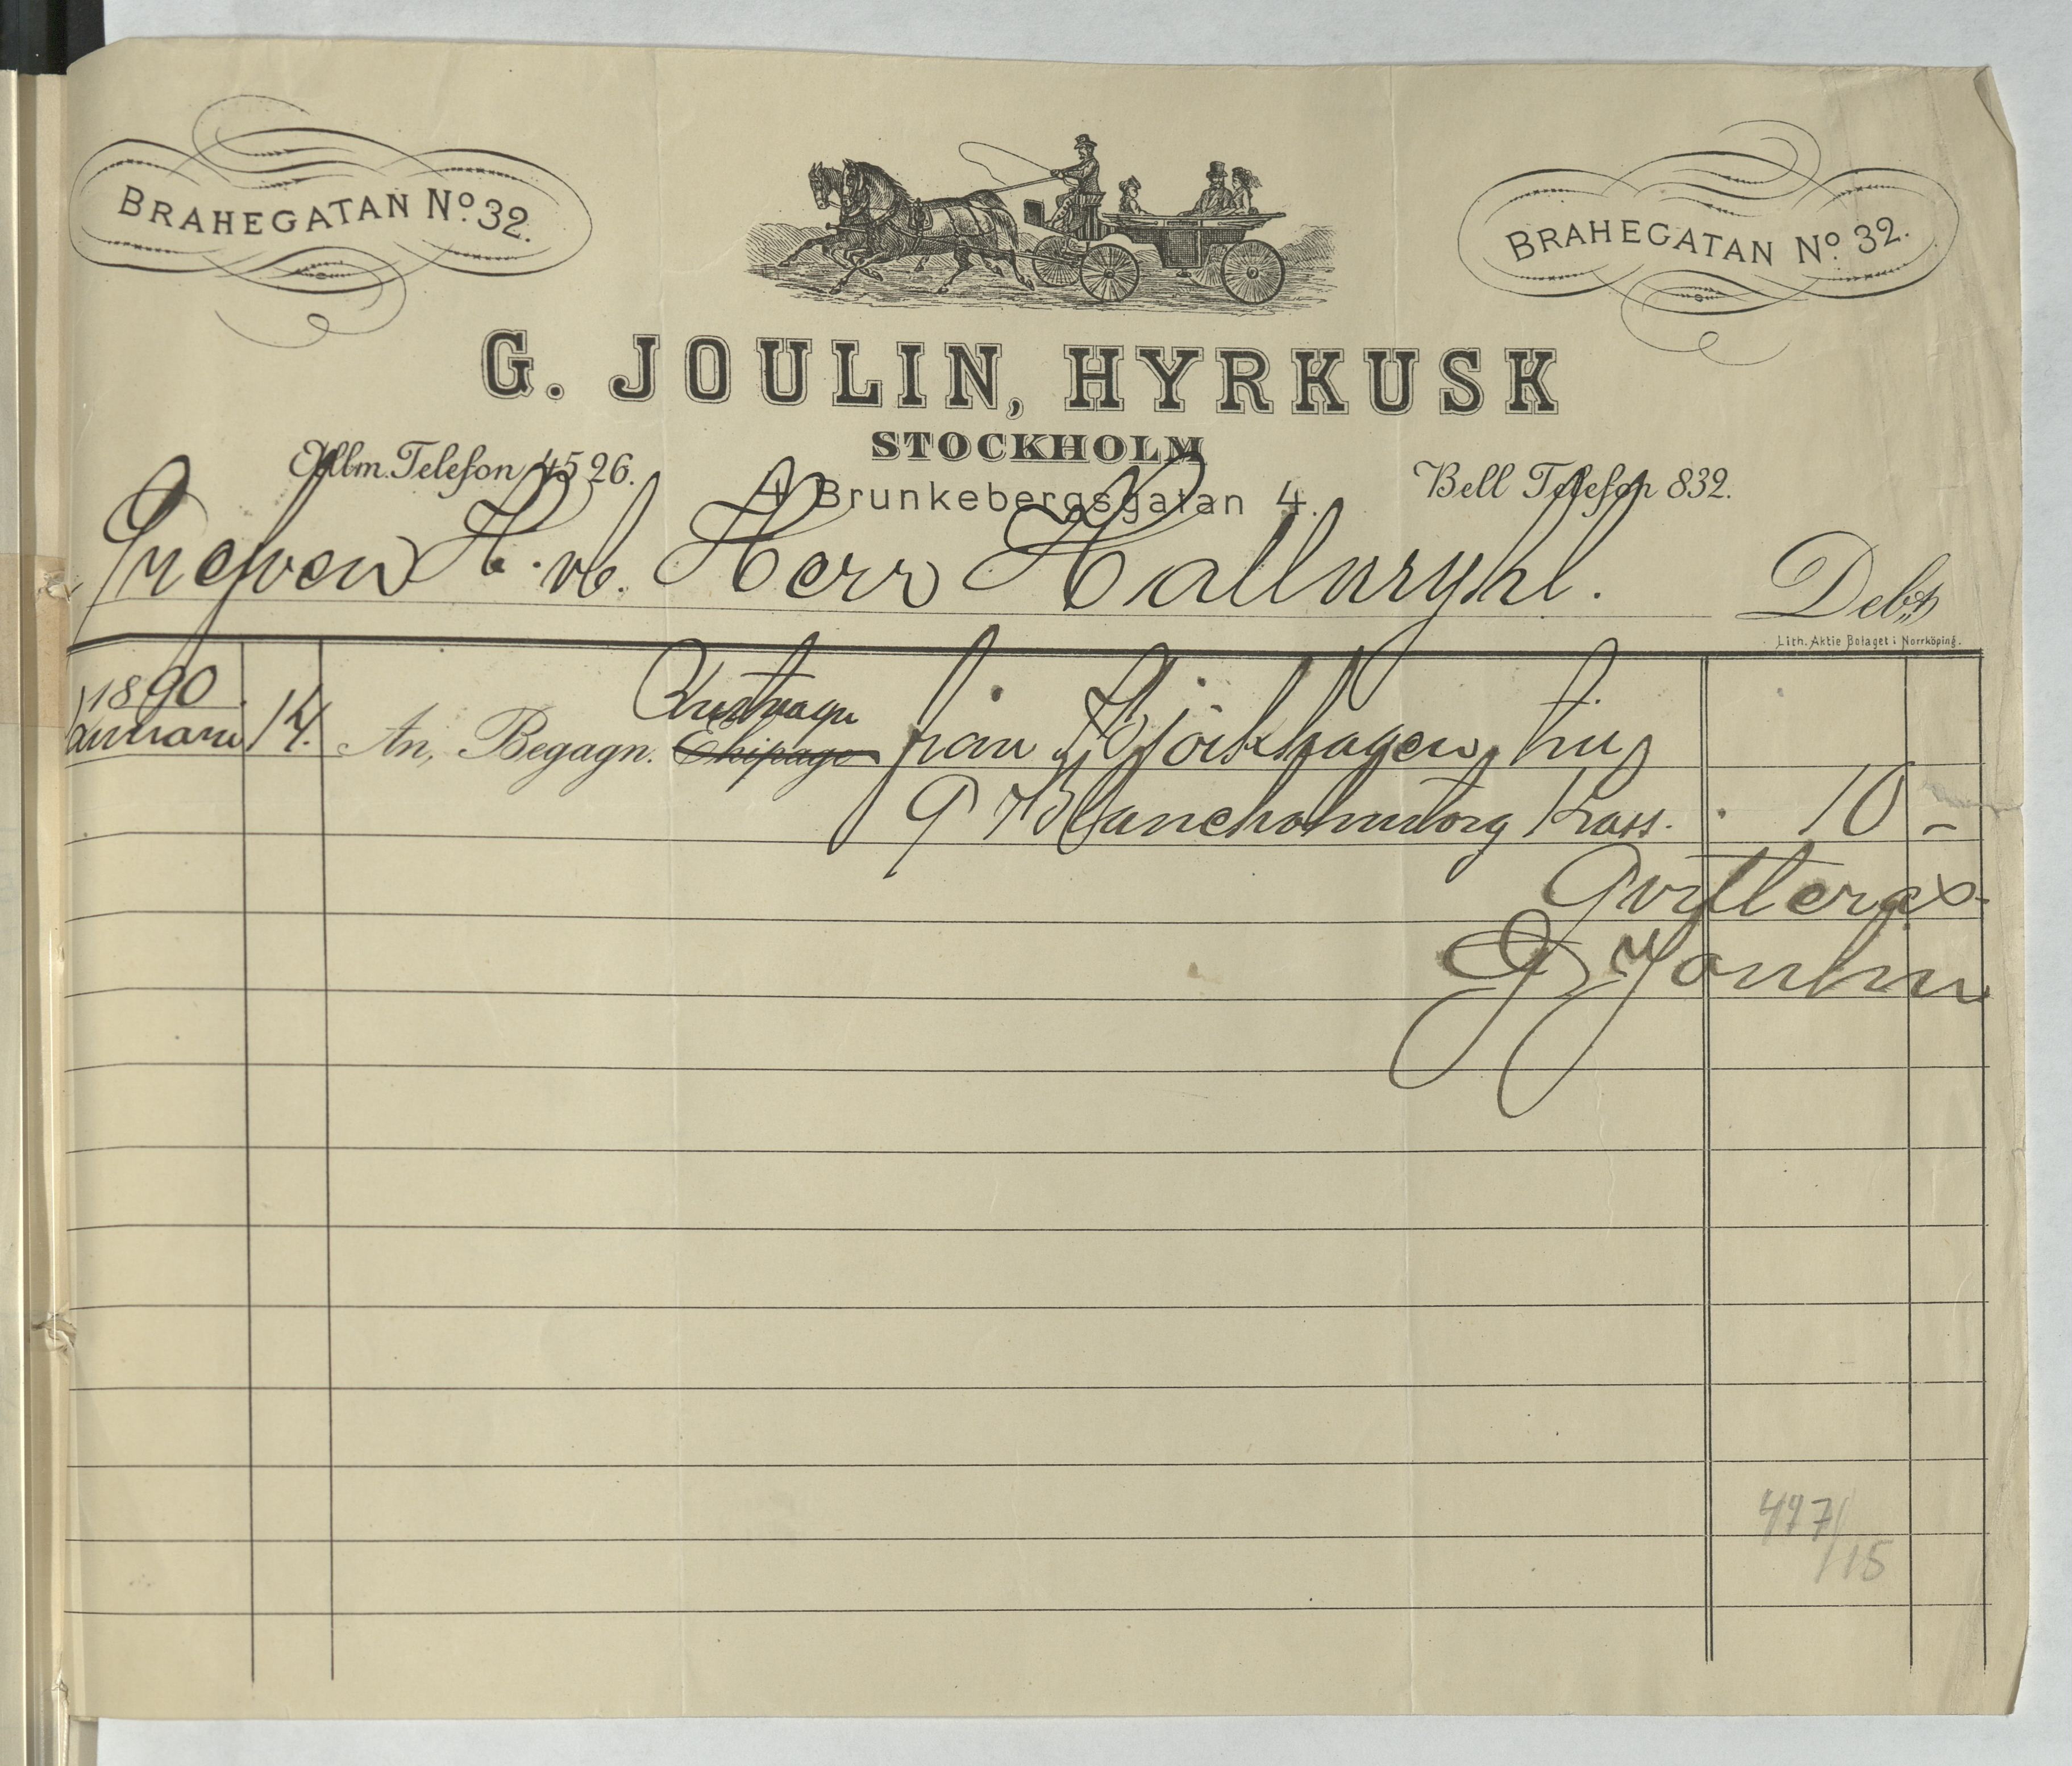 BRAHEGATAN No. 32.
BRAHEGATAN No. 32.
G. JOULIN, HYRKUSK
STOCKHOLM
Allm. Telefon 4526.
4 Brunkebergsgatan 4.
Bell Telefon 832.
Grefven H. v. Herr Hallwyhl. Debet
Lith. Aktie Bolaget i Norrköping.
1890
Januari 14. An, Begagn. Ekipage från Björkhagen, till
Blancheholmstorg Kass. 10 -
Qvitteras
G Joulin
497/15